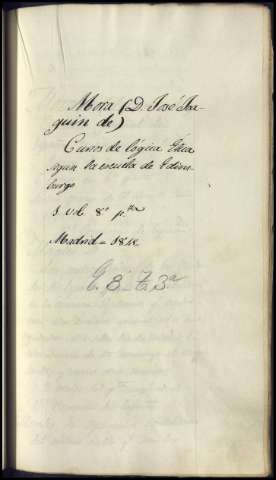 Mora (D. José Joa-
quin de)
Cursos de lógica Etica
segun la escuela de Edim-
burgo
1 vol. 8º p.ta
Madrid = 1845
E. 8ª T. 3ª